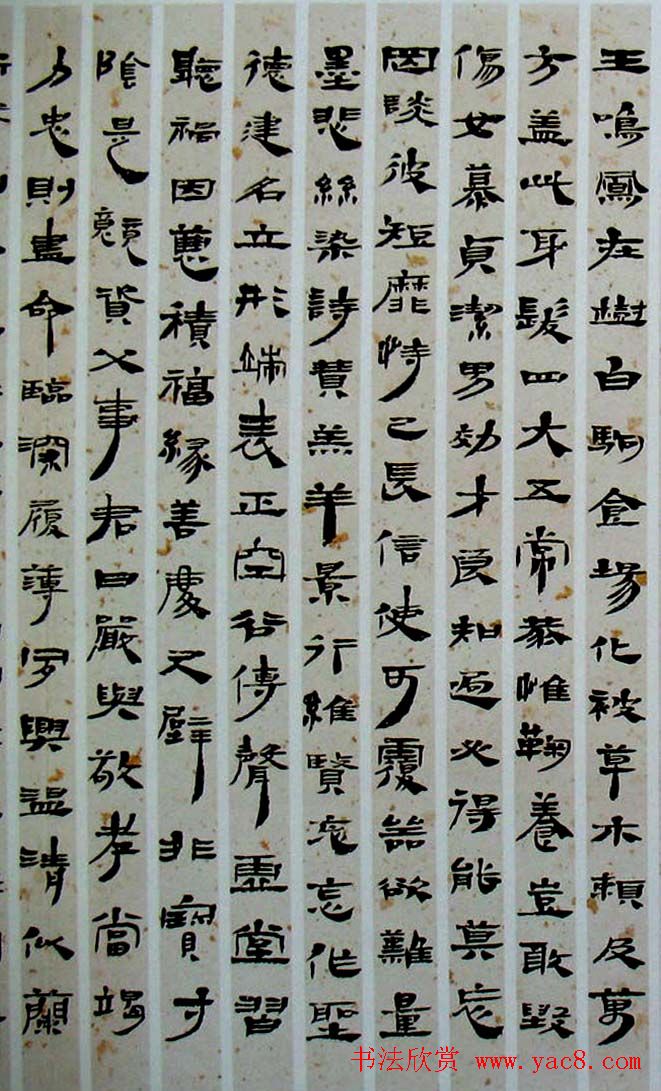 王鳴鳳在樹白駒食場化被草木賴及萬
方蓋此身髮四大五常恭惟鞠養豈敢毀
傷女慕貞潔男効才良知過必得能莫忘
罔談彼短靡恃己長信使可覆器欲難量
墨悲絲染詩贊羔羊景行維賢克念作聖
德建名立形端表正空谷傳聲虛堂習
聽禍因惡積福緣善慶尺璧非寶寸
陰是競資父事君曰嚴與敬孝當竭
力忠則盡命臨深履薄夙興温清似蘭
书法欣赏 www.yac8.com